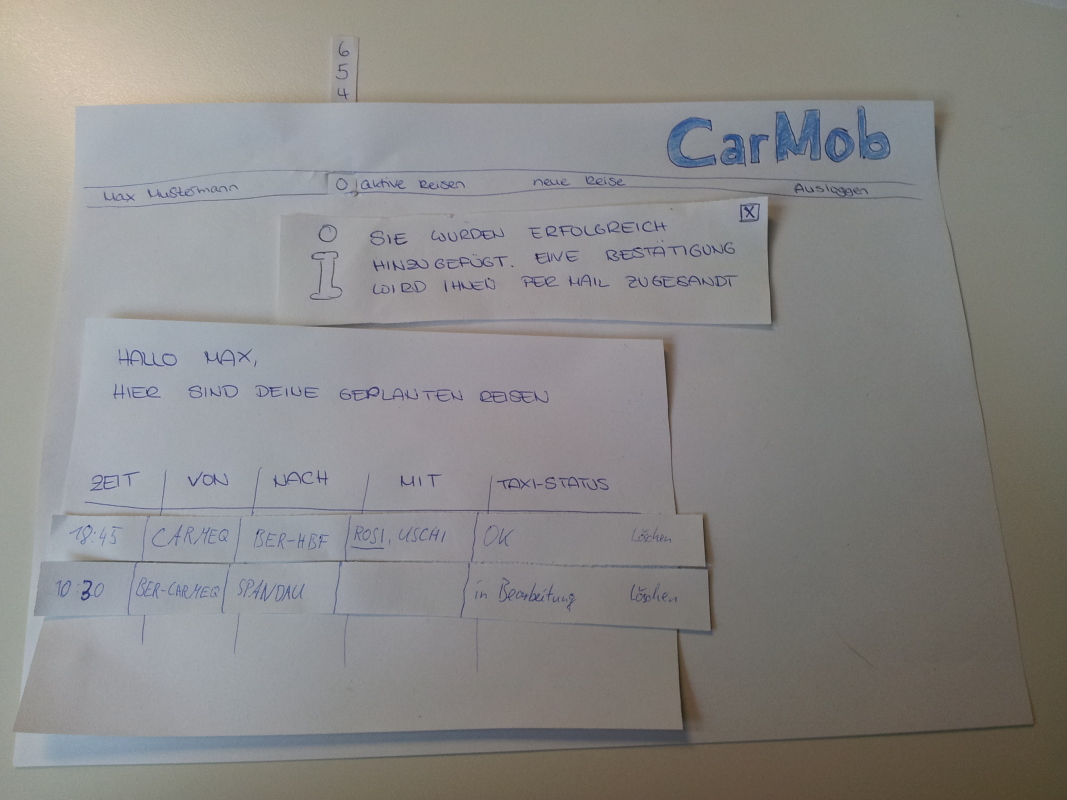 6
5
4
CarMob
Max Mustermann 0 aktive Reisen neue Reise Ausloggen
X
i SIE WURDEN ERFOLGREICH
HINZUGEFÜGT. EINE BESTÄTIGUNG
WIRD IHNEN PER MAIL ZUGESANDT
HALLO MAX,
HIER SIND DEINE GEPLANTEN REISEN
ZEIT VON NACH MIT TAXI-STATUS
18:45 CARMEQ BER-HBF ROSI, USCHI OK Löschen
10:30 BER-CARMEQ SPANDAU in Bearbeitung Löschen